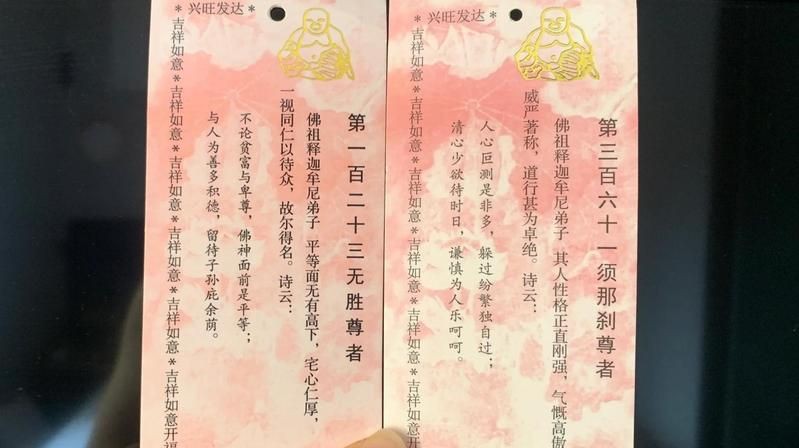 * 兴旺发达 *
第一百二十三无胜尊者
佛祖释迦牟尼弟子 平等面无有高下，宅心仁厚，
一视同仁以待众，故尔得名。诗云：
不论贫富与卑尊，佛神面前是平等；
与人为善多积德，留待子孙庇余荫。
*吉祥如意*吉祥如意*吉祥如意*吉祥如意*吉祥如意*吉祥如意开福
* 兴旺发达 *
第三百六十一须那刹尊者
佛祖释迦牟尼弟子 其人性格正直刚强，气慨高傲
威严著称，道行甚为卓绝。诗云：
人心叵测是非多，躲过纷繁独自过；
清心少欲待时日，谦慎为人乐呵呵。
*吉祥如意*吉祥如意*吉祥如意*吉祥如意*吉祥如意*吉祥如意开福